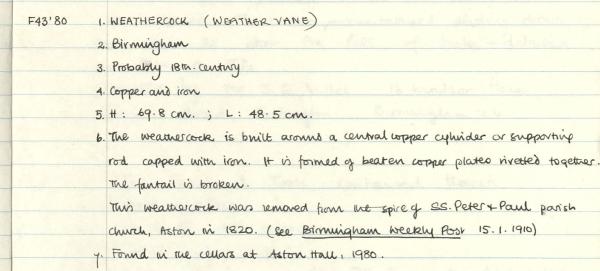 F43'80 1. WEATHERCOCK (WEATHER VANE)
2. Birmingham
3. Probably 18th. century
4. Copper and iron
5. H: 69.8 cm. ; L: 48.5 cm.
6. The weathercock is built around a central copper cylinder or supporting
rod capped with iron. It is formed of beaten copper plates rivetted together.
The fantail is broken.
This weathercock was removed from the spire of SS. Peter & Paul parish
church, Aston in 1820. (See Birmingham Weekly Post 15.1.1910)
7. Found in the cellars at Aston Hall, 1980.